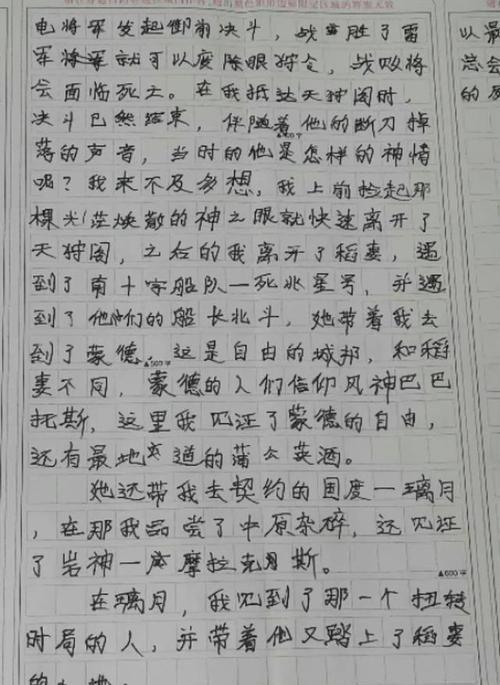 电将军发起御前决斗，战胜了雷
军就可以废除眼狩令，战败将
会面临死亡。在我抵达天狩阁时，
决斗已然结束，伴随着他的断刀掉
落的声音，当时的他是怎样的神情
呢？我来不及多想，我上前捡起那
棵光茫焕散的神之眼就快速离开了
天狩阁，之后的我离开了稻妻，遇
到了南十字船队一死兆星号，并遇
到了他们的船长北斗，她带着我去
到了蒙德，这是自由的城邦，和稻
妻不同，蒙德的人们信仰风神巴巴
托斯，这里我见证了蒙德的自由，
还有最地道的蒲公英酒。
她还带我去契约的国度一璃月
，在那我品尝了中原杂碎，还见证
了岩神一摩拉克斯。
▲600字
在璃月，我见到了那一个扭转
时局的人，并带着他又踏上了稻妻
的
以最
总会
的